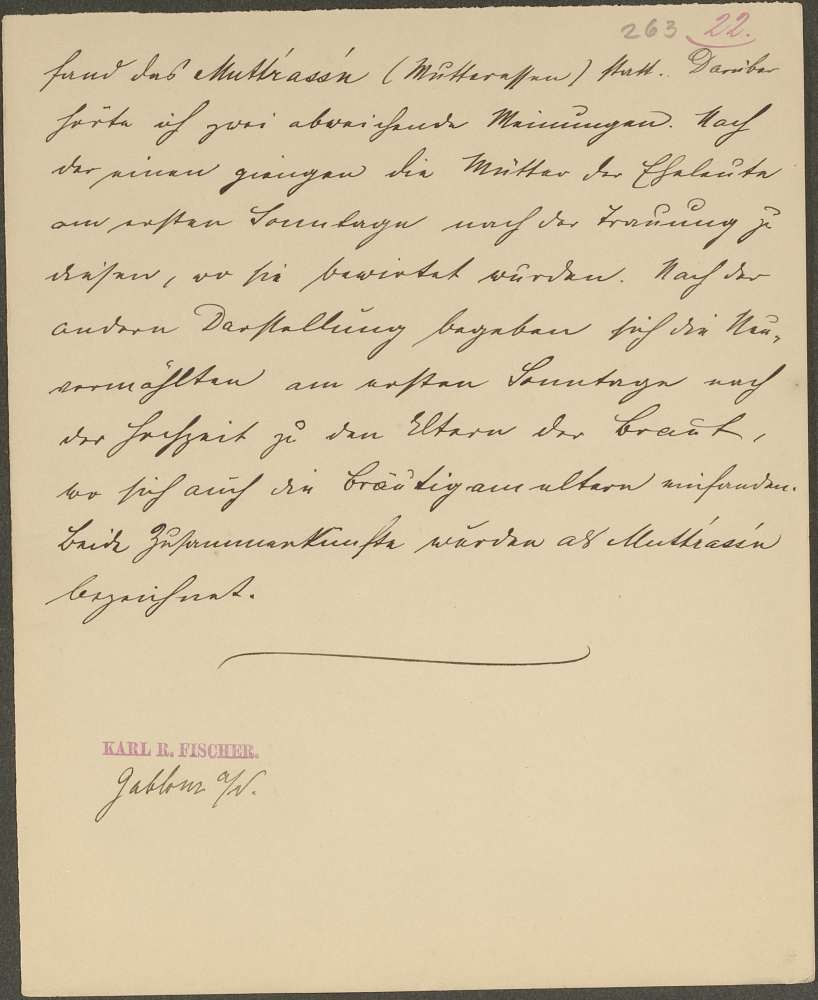 263 22.
fand das Muttrassn (Mutteressen) statt. Darüber
hörte ich zwei abweichende Meinungen. Nach
der einen giengen die Mütter der Eheleute
am ersten Sonntage nach der Trauung zu
diesen, wo sie bewirtet wurden. Nach der
andern Darstellung begeben sich die Neu-
vermählten am ersten Sonntage nach
der Hochzeit zu den Eltern der Braut,
wo sich auch die Bräutigameltern einfanden.
Beide Zusammenkünfte wurden als
bezeichnet.
KARL R. FISCHER.
Gablonz a/N.